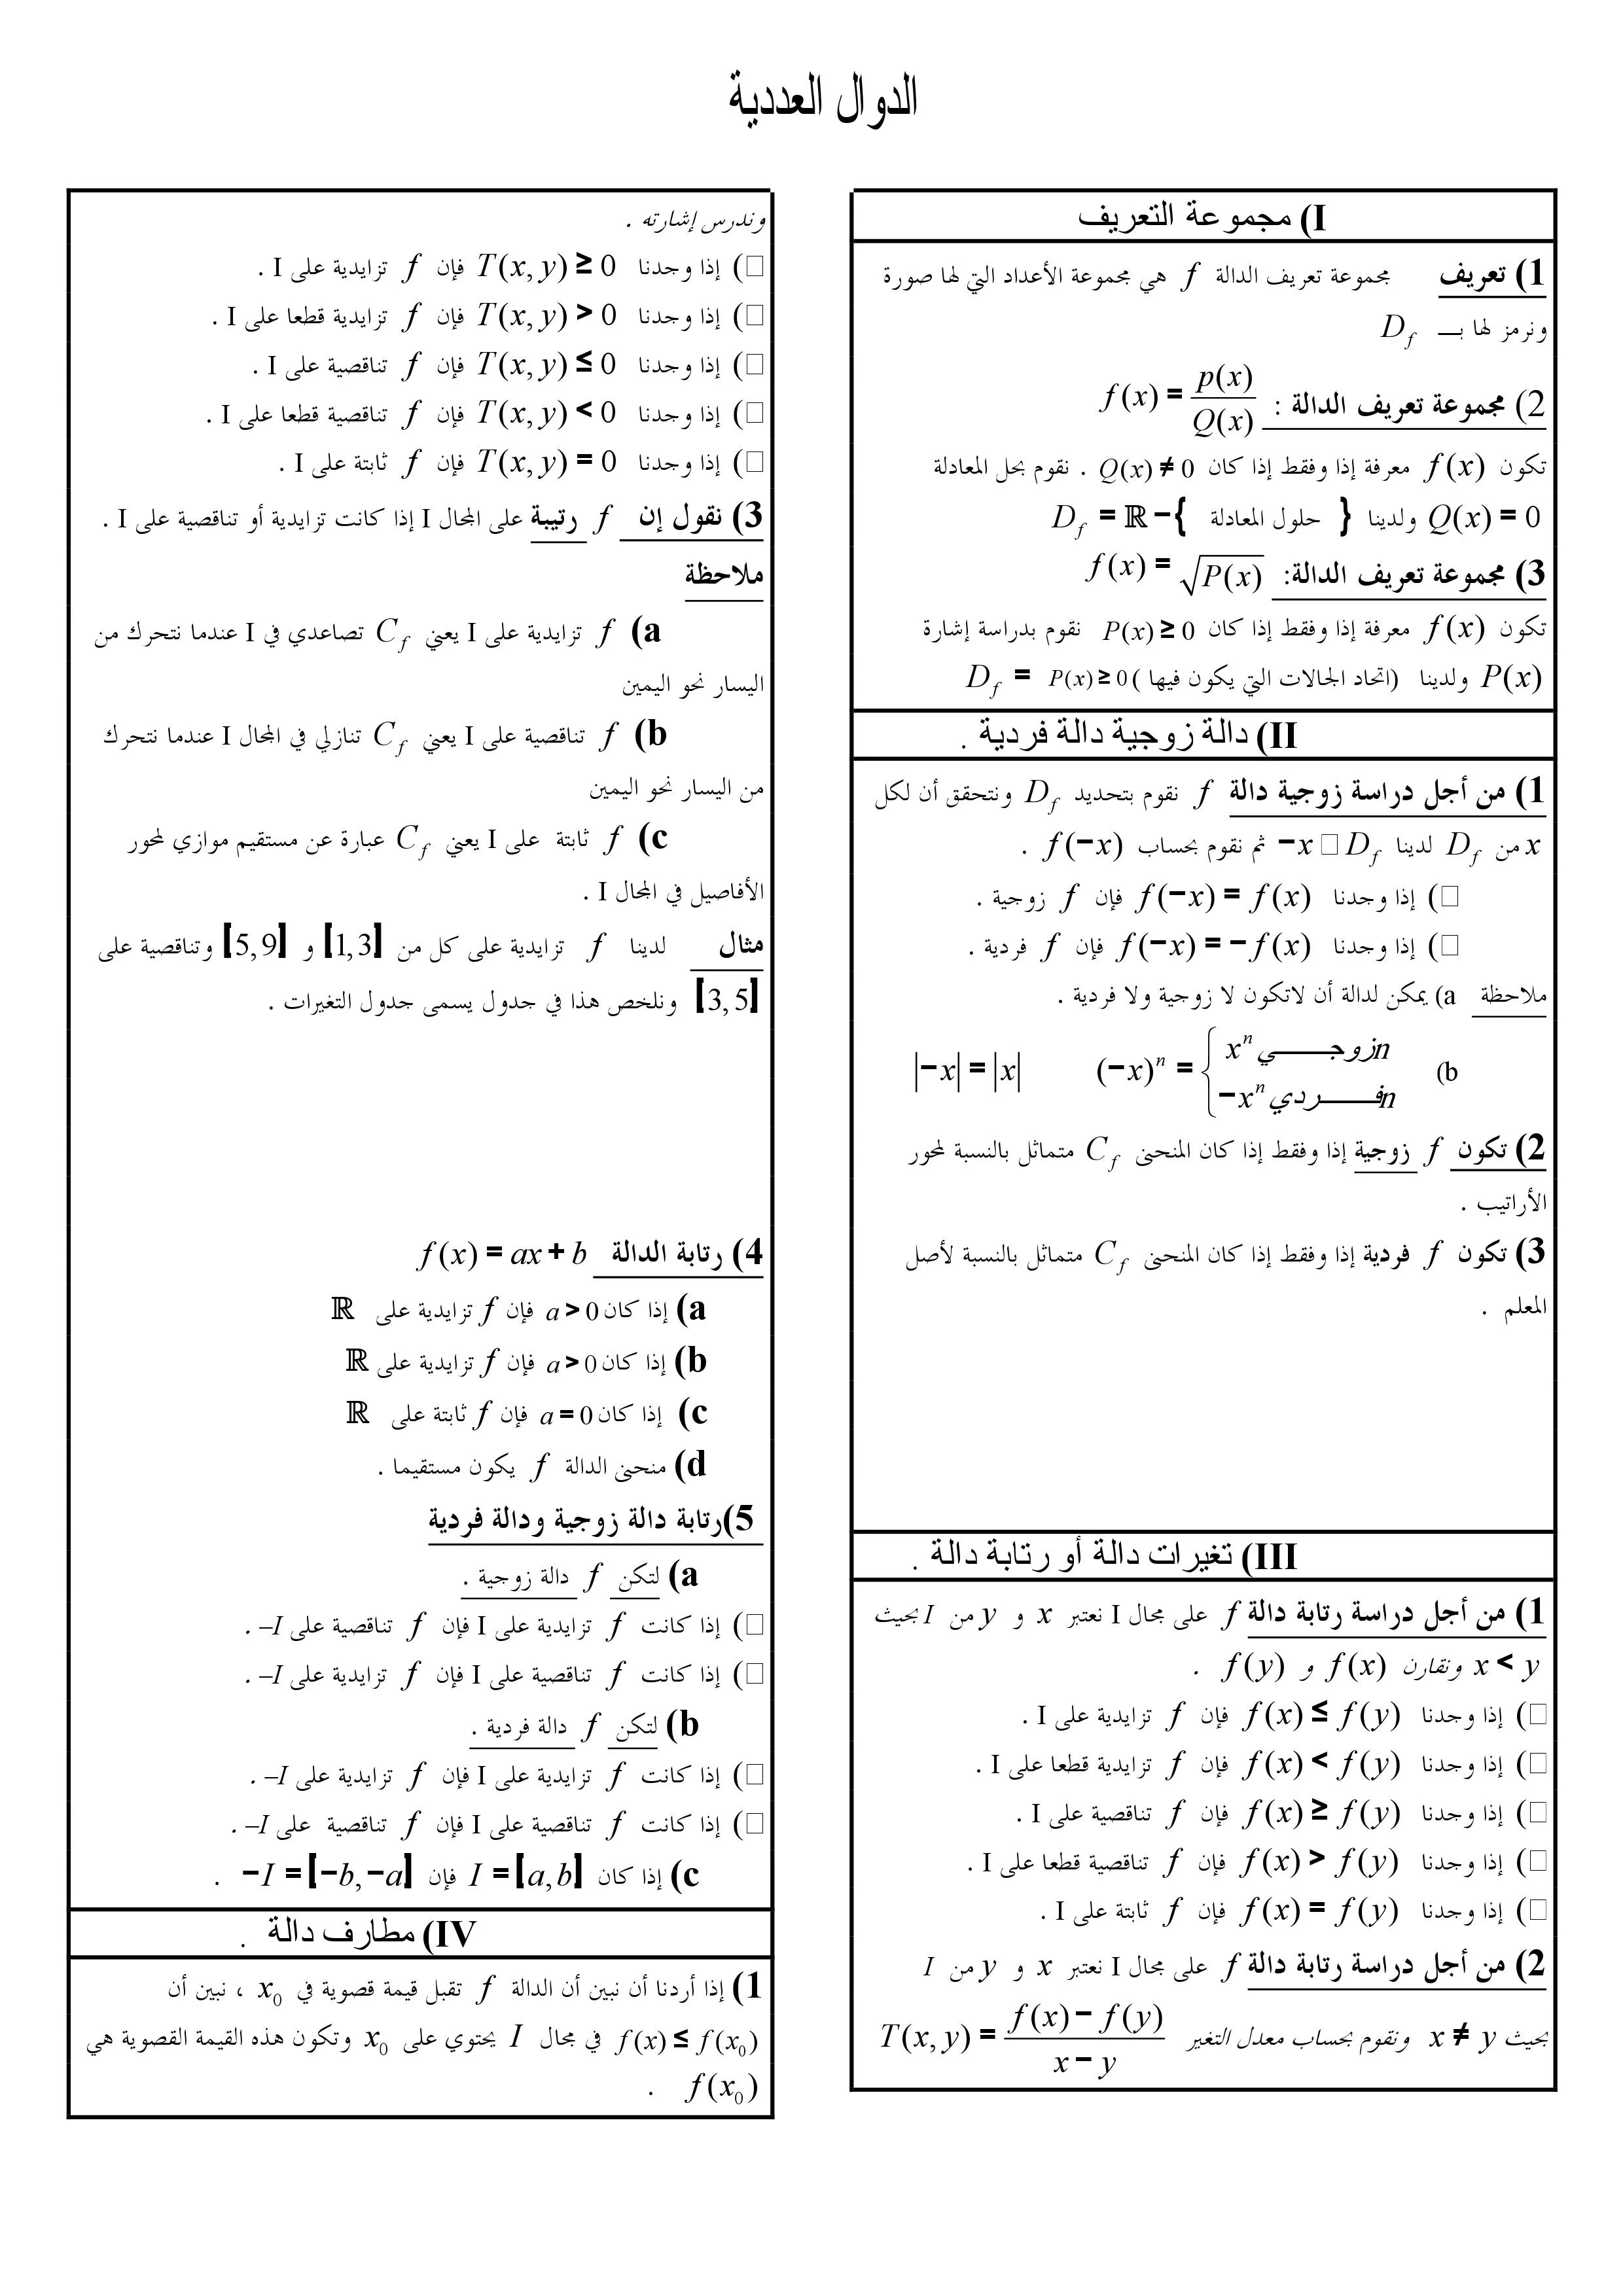 الدوال العددية
I) مجموعة التعريف
1) تعريف مجموعة تعريف الدالة f هي مجموعة الأعداد التي لها صورة
ونرمز لها بـــ D_f
2) مجموعة تعريف الدالة : f(x) = p(x)/Q(x)
تكون f(x) معرفة إذا وفقط إذا كان Q(x) ≠ 0 . نقوم بحل المعادلة
Q(x) = 0 ولدينا D_f = ℝ − { حلول المعادلة }
3) مجموعة تعريف الدالة: f(x) = √P(x)
تكون f(x) معرفة إذا وفقط إذا كان P(x) ≥ 0 نقوم بدراسة إشارة
P(x) ولدينا (اتحاد المجالات التي يكون فيها P(x) ≥ 0 ) D_f =
II) دالة زوجية دالة فردية .
1) من أجل دراسة زوجية دالة f نقوم بتحديد D_f ونتحقق أن لكل
x من D_f لدينا −x □ D_f ثم نقوم بحساب f(−x) .
□) إذا وجدنا f(−x) = f(x) فإن f زوجية .
□) إذا وجدنا f(−x) = −f(x) فإن f فردية .
ملاحظة a) يمكن لدالة أن لاتكون لا زوجية ولا فردية .
b) (−x)^n = { x^n زوجـــــي n ; −x^n فـــــردي n |−x| = |x|
2) تكون f زوجية إذا وفقط إذا كان المنحنى C_f متماثل بالنسبة لمحور
الأراتيب .
3) تكون f فردية إذا وفقط إذا كان المنحنى C_f متماثل بالنسبة لأصل
المعلم .
III) تغيرات دالة أو رتابة دالة .
1) من أجل دراسة رتابة دالة f على مجال I نعتبر x و y من I بحيث
x < y ونقارن f(x) و f(y) .
□) إذا وجدنا f(x) ≤ f(y) فإن f تزايدية على I .
□) إذا وجدنا f(x) < f(y) فإن f تزايدية قطعا على I .
□) إذا وجدنا f(x) ≥ f(y) فإن f تناقصية على I .
□) إذا وجدنا f(x) > f(y) فإن f تناقصية قطعا على I .
□) إذا وجدنا f(x) = f(y) فإن f ثابتة على I .
2) من أجل دراسة رتابة دالة f على مجال I نعتبر x و y من I
بحيث x ≠ y ونقوم بحساب معدل التغير T(x, y) = (f(x) − f(y))/(x − y)
وندرس إشارته .
□) إذا وجدنا T(x, y) ≥ 0 فإن f تزايدية على I .
□) إذا وجدنا T(x, y) > 0 فإن f تزايدية قطعا على I .
□) إذا وجدنا T(x, y) ≤ 0 فإن f تناقصية على I .
□) إذا وجدنا T(x, y) < 0 فإن f تناقصية قطعا على I .
□) إذا وجدنا T(x, y) = 0 فإن f ثابتة على I .
3) نقول إن f رتيبة على المجال I إذا كانت تزايدية أو تناقصية على I .
ملاحظة
a) f تزايدية على I يعني C_f تصاعدي في I عندما نتحرك من
اليسار نحو اليمين
b) f تناقصية على I يعني C_f تنازلي في المجال I عندما نتحرك
من اليسار نحو اليمين
c) f ثابتة على I يعني C_f عبارة عن مستقيم موازي لمحور
الأفاصيل في المجال I .
مثال لدينا f تزايدية على كل من [1,3] و [5,9] وتناقصية على
[3,5] ونلخص هذا في جدول يسمى جدول التغيرات .
4) رتابة الدالة f(x) = ax + b
a) إذا كان a > 0 فإن f تزايدية على ℝ
b) إذا كان a > 0 فإن f تزايدية على ℝ
c) إذا كان a = 0 فإن f ثابتة على ℝ
d) منحنى الدالة f يكون مستقيما .
5)رتابة دالة زوجية ودالة فردية
a) لتكن f دالة زوجية .
□) إذا كانت f تزايدية على I فإن f تناقصية على −I .
□) إذا كانت f تناقصية على I فإن f تزايدية على −I .
b) لتكن f دالة فردية .
□) إذا كانت f تزايدية على I فإن f تزايدية على −I .
□) إذا كانت f تناقصية على I فإن f تناقصية على −I .
c) إذا كان I = [a,b] فإن −I = [−b,−a] .
IV) مطارف دالة .
1) إذا أردنا أن نبين أن الدالة f تقبل قيمة قصوية في x₀ ، نبين أن
f(x) ≤ f(x₀) في مجال I يحتوي على x₀ وتكون هذه القيمة القصوية هي
f(x₀) .